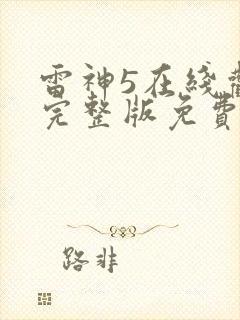 雷神5在线
完整版免费
路非